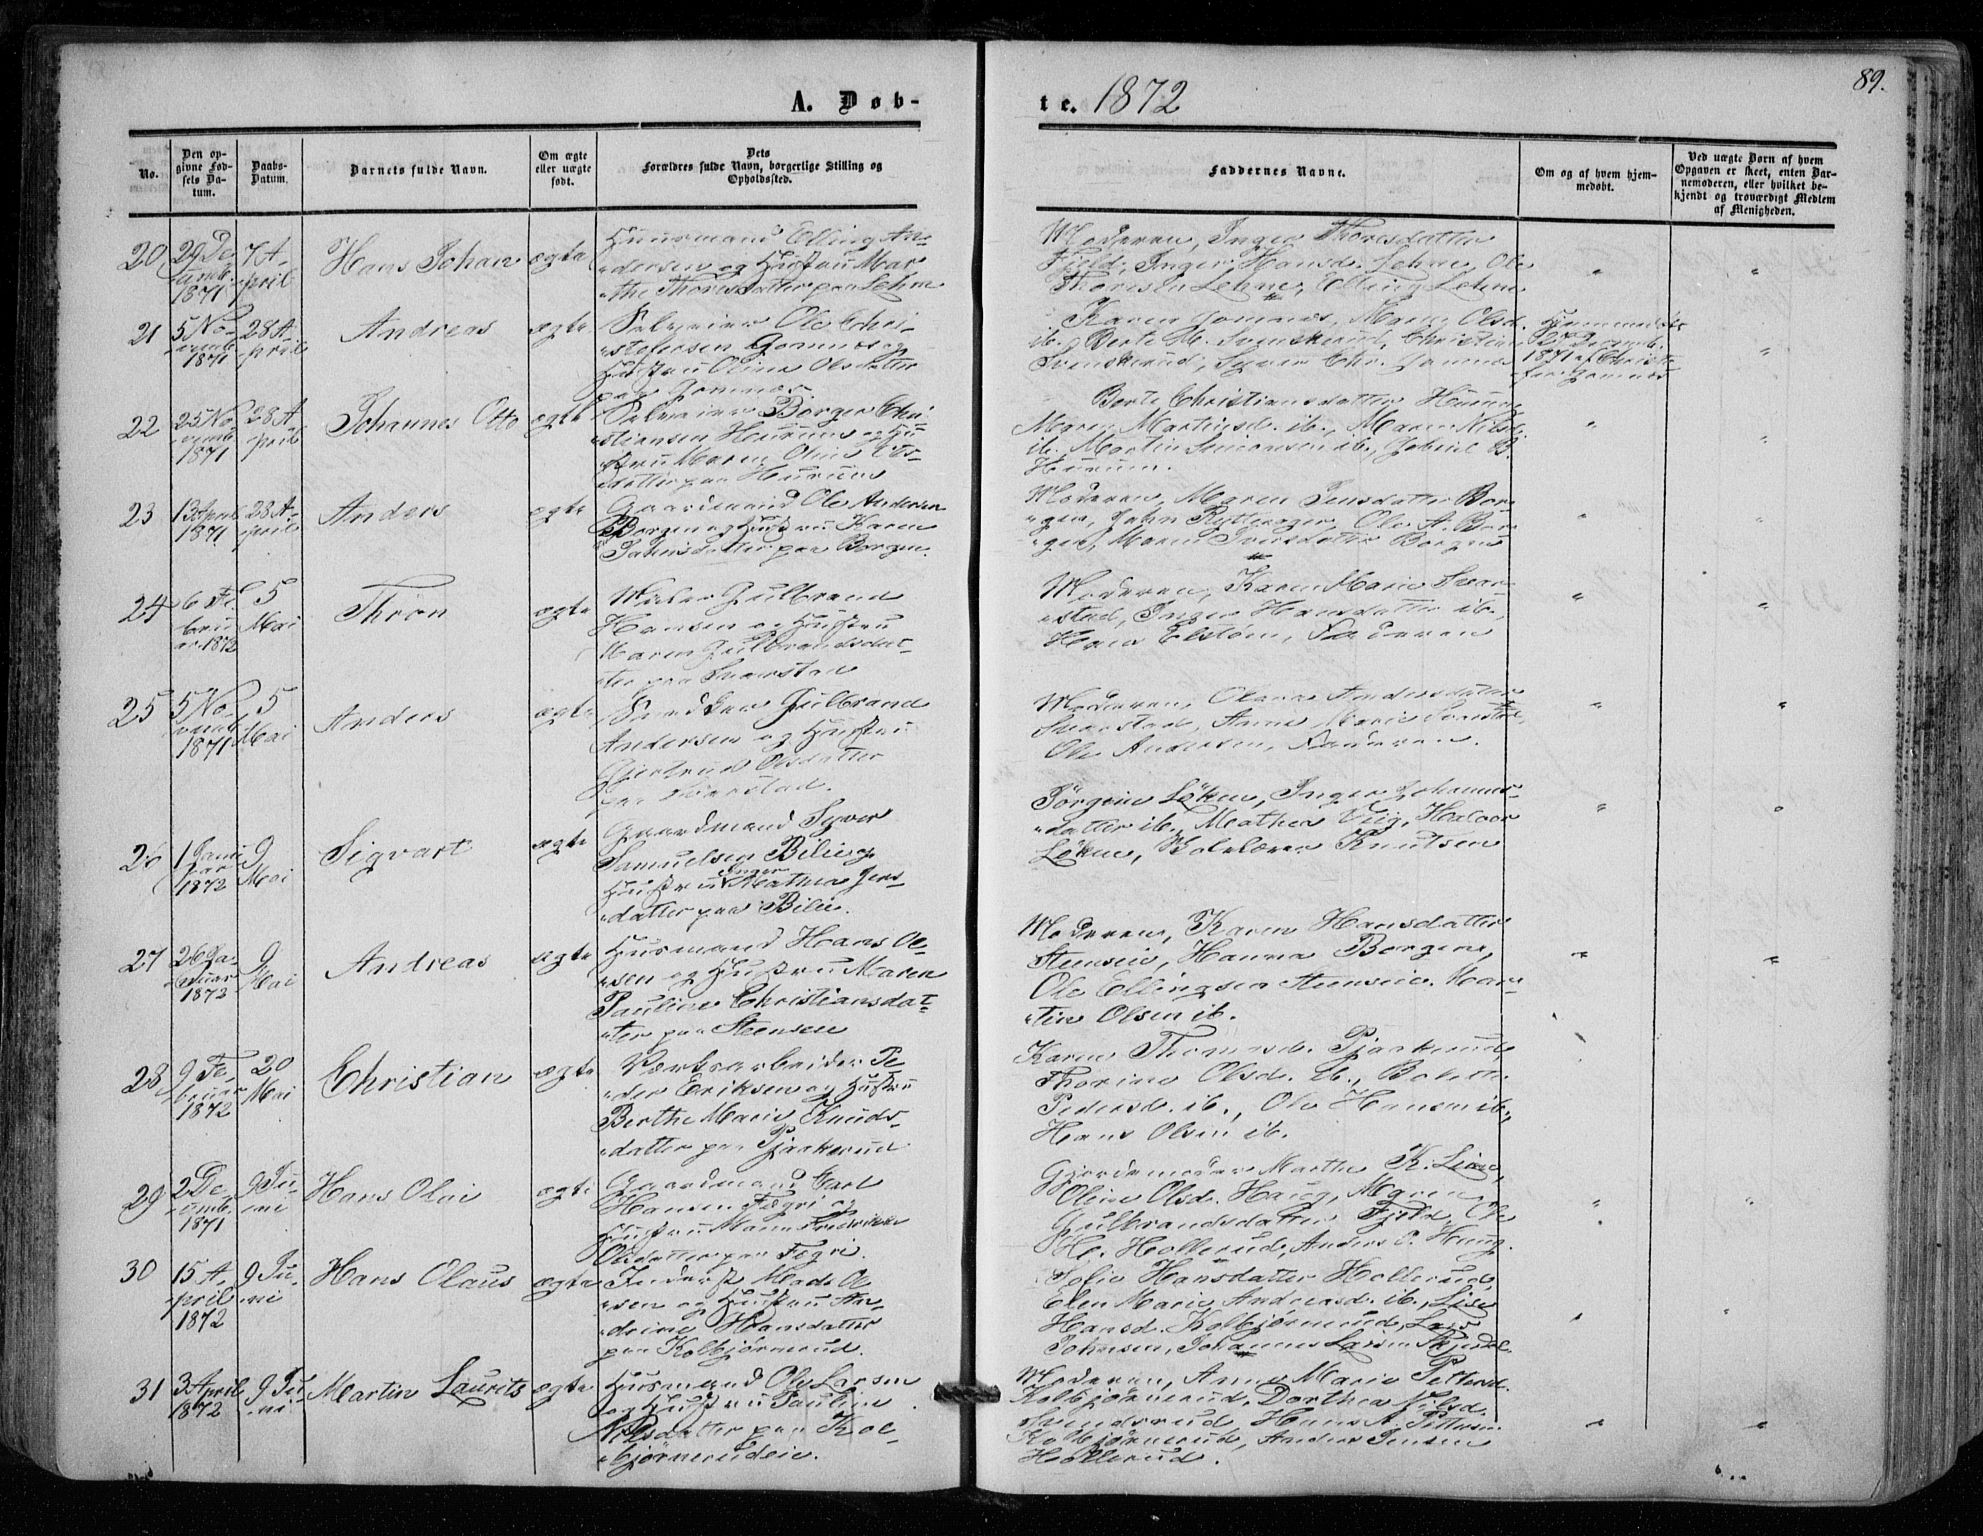 89.
A. Døb-
te. 1872
No.
Den op-
givne Fød-
sels Da-
tum.
Daabs-
Datum.
Barnets fulde Navn.
Om ægte
eller uægte
født.
Dets
Forældres fulde Navn, borgerlige Stilling og
Opholdssted.
Faddernes Navne.
Om og af hvem hjem-
medøbt.
Ved uægte Børn af hvem
Opgaven er skeet, enten Bar-
nemoderen, eller hvilket be-
kjendt og troværdigt Medlem
af Menigheden.
20
29 De-
cemb.
1871
7 A-
pril
Hans Johan
ægte
Huusmand Elling An-
dersen og Hustru Mar-
the Thoresdatter paa Lehne
Moderen, Inger Thoresdatter
Fjeld, Inger Hansd. Lehne, Ole
Thoresen Lehne, Elling Lehne
21
5 No-
vemb.
1871
28 A-
pril
Andreas
ægte
Selveier Ole Chri-
stofersen Gomnæs og
Hustru Oline Olsdatter
paa Gomnæs.
Karen Gomnæs, Maren Olsd.
ib., Berte M. Svenskerud, Christian
Svenskerud, Syver Chr. Gomnæs
Hjemmedøbt
27 Decemb.
1871 af Christo-
fer Gomnæs
22
25 No-
vemb.
1871
28 A-
pril
Johannes Otto
ægte
Selveier Borger Chri-
stiansen Huurum og Hu-
stru Maren Oline Ols-
datter paa Huurum
Berte Christiansdatter Huurum
Maren Martinsd. ib., Maren Nilsd.
ib. Martin Simonsen ib., Gabriel B.
Huurum.
23
13 April
1871
28 A-
pril
Anders
ægte
Gaardmand Ole Andersen
Borgen og Hustru Karen
Jahnsdatter paa Borgen.
Moderen, Maren Jensdatter Bor-
gen, John Rytterager, Ole A. Bor-
gen, Maren Iversdatter Borgen
24
6 Fe-
bru-
ar 1872
5
Mai
Thron
ægte
Maler Gulbrand
Hansen og Hustru
Maren Gulbrandsdat-
ter paa Svarstad
Moderen, Karen Marie Svar-
stad, Inger Hansdatter ib.
Hans Elstøen, Faderen
25
5 No-
vemb.
1871
5
Mai
Anders
ægte
Gulbrand
Andersen og Hustru
Gjertrud Olsdatter
paa Svarstad.
Moderen, Olava Andersdatter
Svarstad, Anne Marie Svarstad,
Ole Andersen, Faderen.
26
1 Janu-
ar
1872
9
Mai
Sigvart
ægte
Gaardmand Syver
Samuelsen Bili og
Hustru Inger Mathea Jens-
datter paa Bili.
Jørgine Løken, Inger Johannes-
datter ib., Mathea Viig, Halvor
Løken, Knutsen
27
26 Ja-
nuar
1872
9
Mai
Andreas
ægte
Husmand Hans Ol-
sen og Hustru Maren
Pauline Christiansdat-
ter paa Steenseie
Moderen, Karen Hansdatter
Steenseie, Hanna Borgen,
Ole Ellingsen Steenseie, Mar-
tin Olsen ib.
28
9 Fe-
bruar
1872
20
Mai
Christian
ægte
Værksarbeider Pe-
der Eriksen og Hustru
Berthe Marie Knuds-
datter paa Pjaakerud
Karen Thomasd. Pjaakerud,
Thorine Olsd. ib., Bolette
Pedersd. ib., Ole Hansen ib.,
Hans Olsen ib.
29
2 De-
cemb.
1871
9 Ju-
ni
Hans Olai
ægte
Gaardmand Carl
Hansen Fegri og
Hustru Maren Fredrikke
Olsdatter paa Fegri.
Gjordemoder Marthe K. Lien,
Oline Olsd. Haug, Maren
Gulbrandsdatter Fjeld, Ole
H. Hollerud, Anders O. Haug.
30
15 A-
pril
1872
9 Ju-
ni
Hans Olaus
ægte
Inderst Mads Ol-
sen og Hustru An-
drine Hansdatter
paa Kolbjørnrud.
Sofie Hansdatter Hollerud,
Elen Marie Andreasd. ib., Lise
Hansd. Kolbjørnrud, Lars
Johnsen, Johannes Larsen
31
3 April
1872
9 Ju-
ni
Martin Laurits
ægte
Husmand Ole Larsen
og Hustru Pauline
Nilsdatter paa Kol-
bjørnrudeie.
Moderen, Anne Marie Pettersd.
Kolbjørnrud, Dorthea Nilsd.
Hans A. Pettersen
Kolbjørnrud, Anders Jensen
Hollerud.